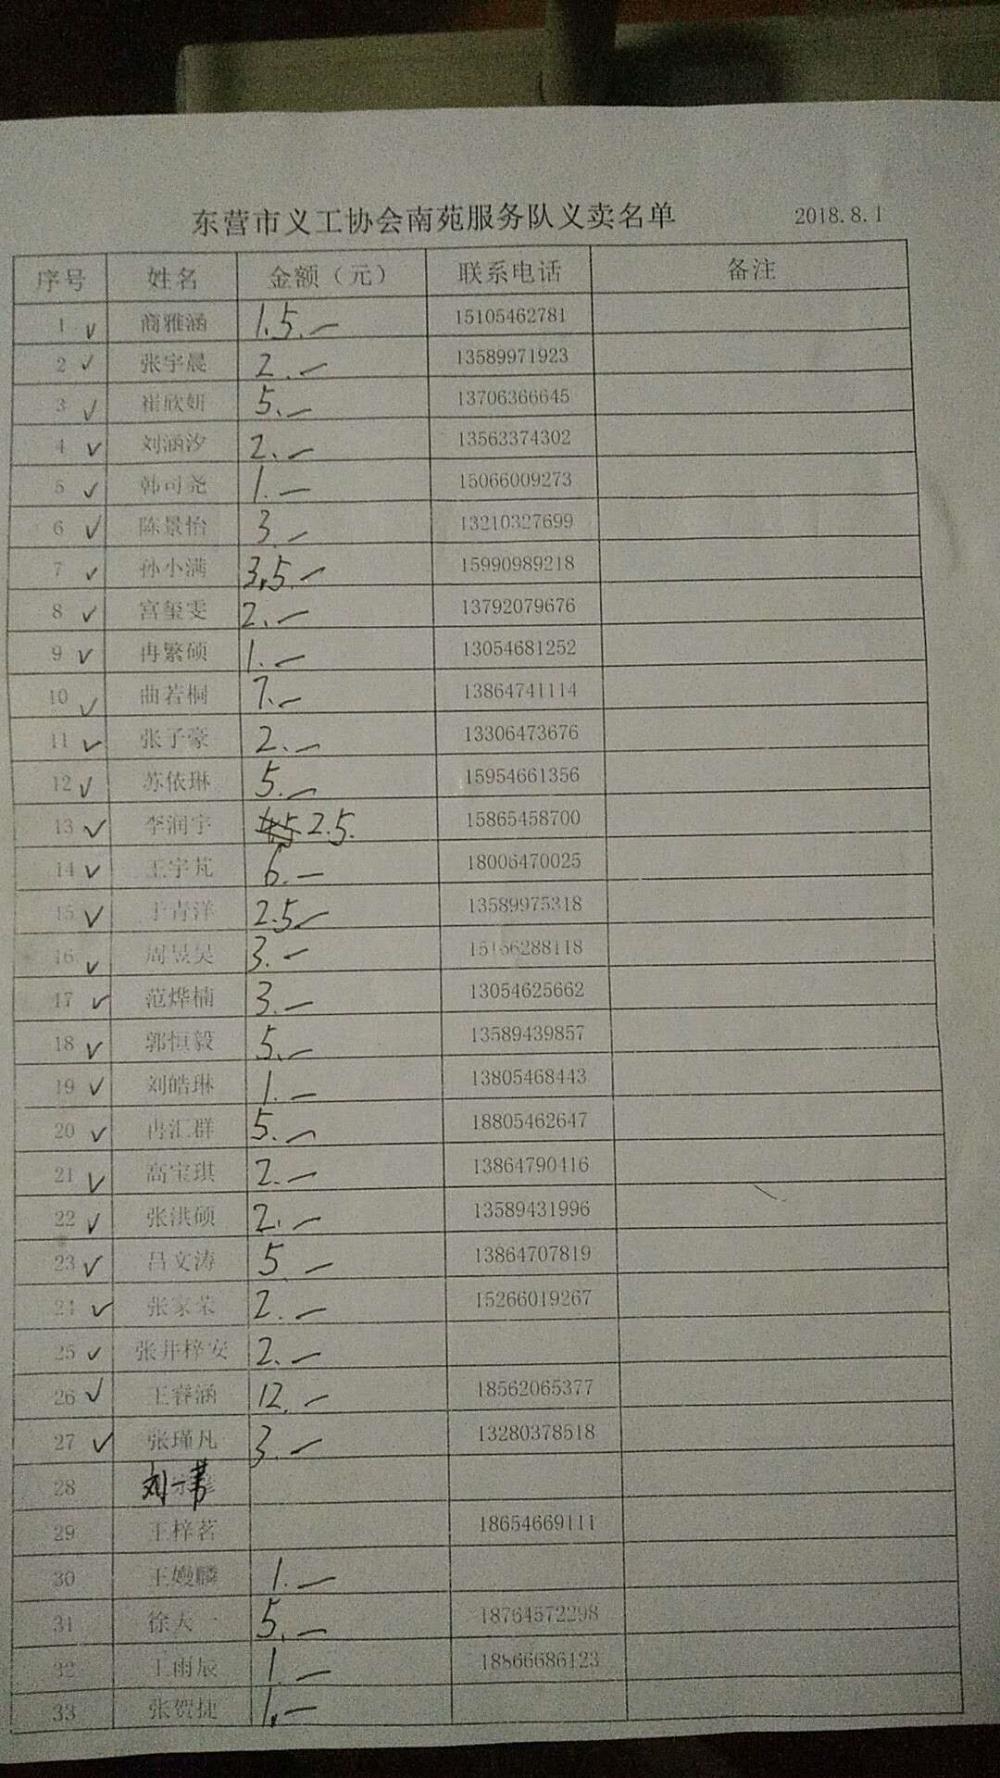 东营市义工协会南苑服务队义卖名单 2018.8.1
序号 姓名 金额（元） 联系电话 备注
1 ✓ 商雅涵 1.5.— 15105462781
2 ✓ 张宇晨 2.— 13589971923
3 ✓ 崔欣妍 5.— 13706366645
4 ✓ 刘涵汐 2.— 13563374302
5 ✓ 韩可尧 1.— 15066009273
6 ✓ 陈景怡 3.— 13210327699
7 ✓ 孙小满 3.5.— 15990989218
8 ✓ 宫玺雯 2.— 13792079676
9 ✓ 冉繁硕 1.— 13054681252
10 ✓ 曲若桐 7.— 13864741114
11 ✓ 张子豪 2.— 13306473676
12 ✓ 苏依琳 5.— 15954661356
13 ✓ 李润宇 2.5. 15865458700
14 ✓ 王宇芃 6.— 18006470025
15 ✓ 于青洋 2.5— 13589975318
16 ✓ 周昱昊 3.— 15166288118
17 ✓ 范烨楠 3.— 13054625662
18 ✓ 郭恒毅 5.— 13589439857
19 ✓ 刘皓琳 1.— 13805468443
20 ✓ 冉汇群 5.— 18805462647
21 ✓ 高宝琪 2.— 13864790416
22 ✓ 张洪硕 2.— 13589431996
23 ✓ 吕文涛 5 — 13864707819
24 ✓ 张家荣 2.— 15266019267
25 ✓ 张井梓安 2.—
26 ✓ 王睿涵 12.— 18562065377
27 ✓ 张瑾凡 3.— 13280378518
28 刘一
29 王梓茗 18654669111
30 王嫚麟 1.—
31 徐天一 5.— 18764572298
32 王雨辰 1.— 18866686123
33 张贺捷 1.—